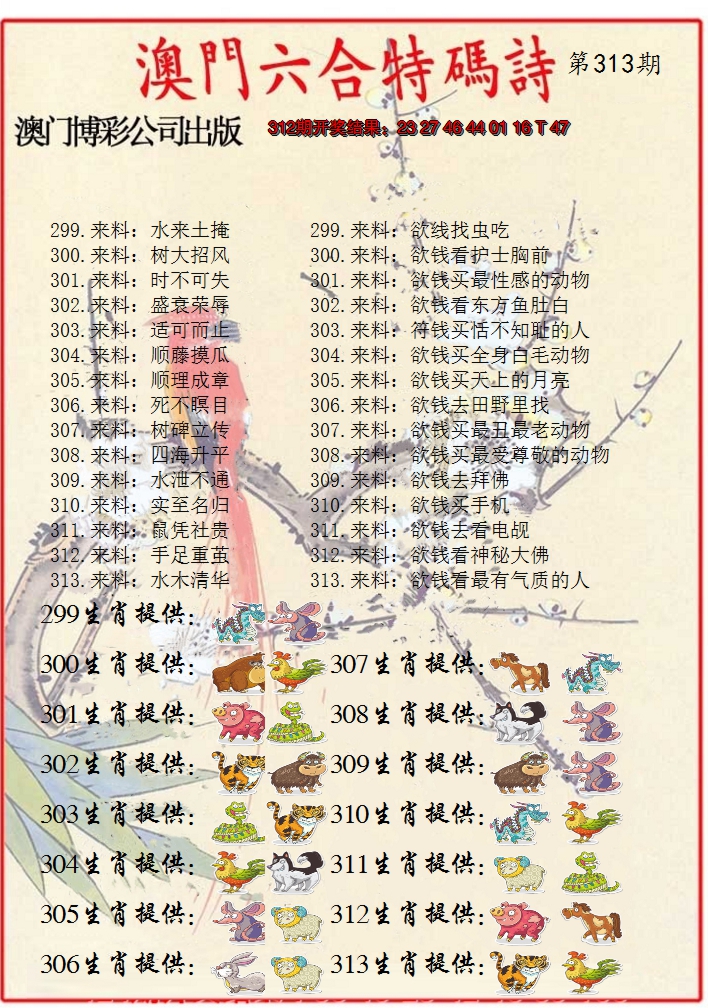 澳門六合特碼詩 第313期
澳门博彩公司出版 312期开奖结果：23 27 46 44 01 16 T 47
299.来料：水来土掩 299.来料：欲线找虫吃
300.来料：树大招风 300.来料：欲钱看护士胸前
301.来料：时不可失 301.来料：欲钱买最性感的动物
302.来料：盛衰荣辱 302.来料：欲钱看东方鱼肚白
303.来料：适可而止 303.来料：符钱买恬不知耻的人
304.来料：顺藤摸瓜 304.来料：欲钱买全身白毛动物
305.来料：顺理成章 305.来料：欲钱买天上的月亮
306.来料：死不瞑目 306.来料：欲钱去田野里找
307.来料：树碑立传 307.来料：欲钱买最丑最老动物
308.来料：四海升平 308.来料：欲钱买最爱尊敬的动物
309.来料：水泄不通 309.来料：欲钱去拜佛
310.来料：实至名归 310.来料：欲钱买手机
311.来料：鼠凭社贵 311.来料：欲钱去看电觇
312.来料：手足重茧 312.来料：欲钱看神秘大佛
313.来料：水木清华 313.来料：欲钱看最有气质的人
299生肖提供：
300生肖提供： 307生肖提供：
301生肖提供： 308生肖提供：
302生肖提供： 309生肖提供：
303生肖提供： 310生肖提供：
304生肖提供： 311生肖提供：
305生肖提供： 312生肖提供：
306生肖提供： 313生肖提供：